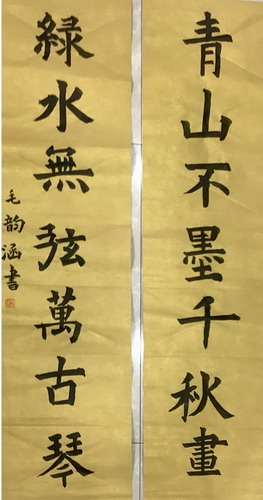 青山不墨千秋畫
綠水無弦萬古琴
毛韵涵書